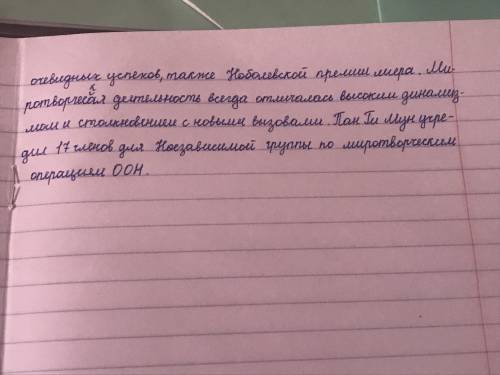 очевидных успехов, также Нобелевской премии мира. Ми-
ротворческая деятельность всегда отличалась высоким динамиз-
мом и столкновением с новыми вызовами. Пан Ги Мун учре-
дил 17 членов для Независимой группы по миротворческим
операциям ООН.